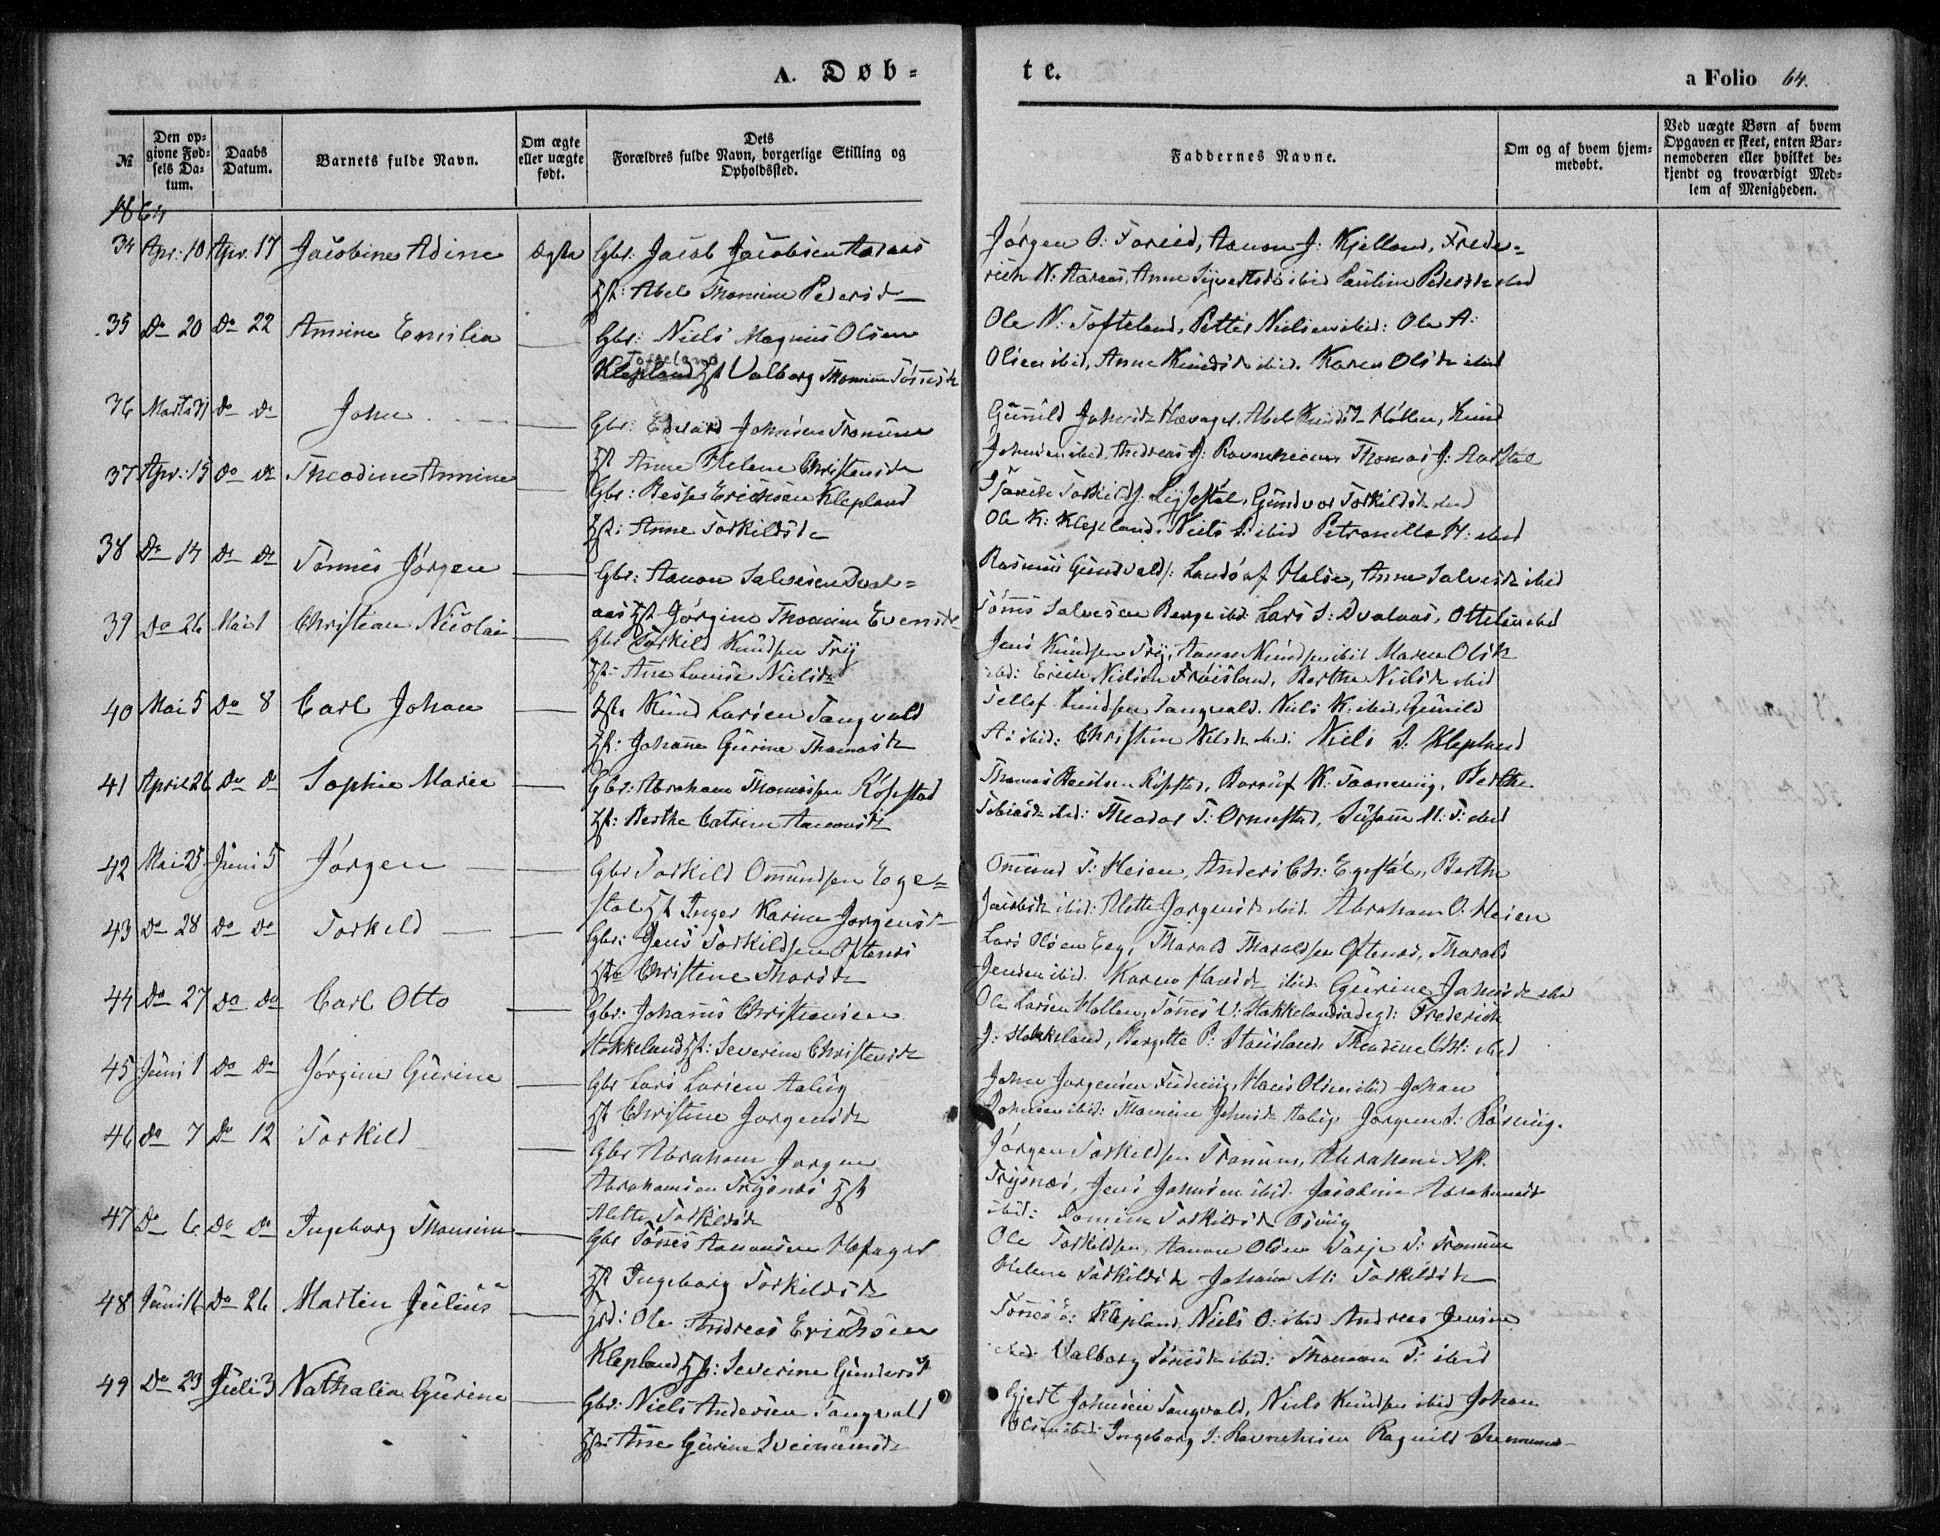 A. Døb-
te.
a Folio 64.
№
Den op-
givne Fød-
sels Da-
tum.
Daabs
Datum.
Barnets fulde Navn.
Om ægte
eller uægte
født.
Dets
Forældres fulde Navn, borgerlige Stilling og
Opholdssted.
Faddernes Navne.
Om og af hvem hjem-
medøbt.
Ved uægte Børn af hvem
Opgaven er skeet, enten Bar-
nemoderen eller hvilket be-
kjendt og troværdigt Med-
lem af Menigheden.
1864
34 Apr: 10 Apr. 17 Jacobine Adine Ægte Gbr: Jacob Jacobsen Aaraas
Hst: Abel Thomine Pedersd
Jørgen Aanon J: Kjelland, Frede-
rich N: Aaraas, Anne ibid Pauline Pedersd ibid
35 Do 20 Do 22 Annine Emilie — Gbr: Niels Magnus Olsen
Tofteland
Klepland Hst Valborg Thomine Tønnesd
Ole N: Tofteland, Petter Nielsen ibid: Ole A:
Olsen ibid, Anne Knudsd ibid. Karen Olsd ibid
36 Marts 31 Do Do John — Gbr: Edvard Johnsen Tronum
Hst Anne Helene Christensd
Gunild Johnsd Høvaget, Abel Knudsd Høllen, Knud
Johnsen ibid, Andreas J: Ravnheien Thomas J: Aarstøl
37 Apr: 15 Do Do Theodine Annine — Gbr: Besse Erichsen Klepland
Hst: Anne Torkildsd
Torkilds: Gundvor Torkildsd ibid
Ole K: Klepland, Niels ibid Petronelle H: ibid
38 Do 14 Do Do Tønnes Jørgen — Gbr: Aanon Salvesen Dval-
aas Hst Jørgine Thomine Evensd
Rasmus Gundvalds: Landø af Halse, Anne Salvesd ibid
Tønes Salvesen Berge ibid: Lars S: Dvalaas, ibid
39 Do 26 Mai 1 Christian Nicolai — Gbr Torkild Knudsen Try
Hst: Ane Lovise Nielsd
Jens Knudsen Try, Aanon Knudsen ibid Maren Olsd
ibid: Erich Nielsen Frøisland, Berthe Nielsd ibid
40 Mai 5 Do 8 Carl Johan — Knud Larsen Tangvald
Hst: Johanne Gurine Thomasd
Tellef Knudsen Tangvald. Niels K. ibid, Gunild
A: ibid: Christine Nielsd ibid: Niels Klepland
41 April 26 Do Do Sophie Marie — Gbr: Abraham Thomassen Røsstad
Hst: Berthe Catrine Aanonsd
Thomas Røsstad, K: Berthe
Tobiasd ibid: Theodor T: Ormestad, Susanne M: T: ibid
42 Mai 25 Juni 5 Jørgen — Gbr Torkild Omundsen Ege-
støl Hst Inger Karine Jørgensd
Omund T: Heien, Anders Ch: Egestøl, Berthe
Jacobsd ibid: Alette Jørgensd ibid. Abraham O: Heien
43 Do 28 Do Do Torkild — Gbr: Jens Torkildsen Oftenes
Hst Christine Thorsd
Lars Olsen Eeg, Tharald Tharaldsen Oftenes, Tharald
Jensen ibid. Karen ibid: Gurine Johnsd ibid
44 Do 27 Do Do Carl Otto — Gbr: Johannes Christensen
Stokkeland Hst: Severine Christensd
Ole Larsen Høllen, Tønnes Stokkeland Frederich
J: Stokkeland, Bergitte P: Stousland Theodine Ch: ibid
45 Juni 1 Do Do Jørgine Gurine — Gbr Lars Larsen Aabug
Hst Christine Jørgensd
John Jørgensen Hans Olsen ibid Johan
Johnsen ibid: Thomine Johnsd Aabug Jørgen
46 Do 7 Do 12 Torkild — Gbr Abraham Jørgen
Abrahamsen Trysnes Hst
Alette Torkildsd
Jørgen Torkildsen Tronum, Abraham
Trysnes, Jens Johnsen ibid. Jacobine Abrahamsd
ibid: Tomine Torkildsd
47 Do 6 Do Do Ingeborg Thomine — Gbr Tønnes Aanonsen Høvaget
Hst Ingeborg Torkildsd
Ole Torkildsen, Aanon Olsen Tarje T: Tronum
Helene Torkildsd Johanne M: Torkildsd
48 Juni 16 Do 26 Martin Julius — Ole Andreas Erichsen
Klepland Hst: Severine Gundersd
Tønnes E: Klepland, Niels O: ibid Andreas Jensen
ibid: Valborg Tønnesd ibid: Thomine T: ibid
49 Do 23 Juli 3 Nathalia Gurine — Gbr: Niels Andersen Tangvald
Hst: Anne Gurine
Gjert Johnsen Tangvald, Niels Knudsen ibid Johan
Olsen ibid: Ingeborg J: Ravneheien Ragnild